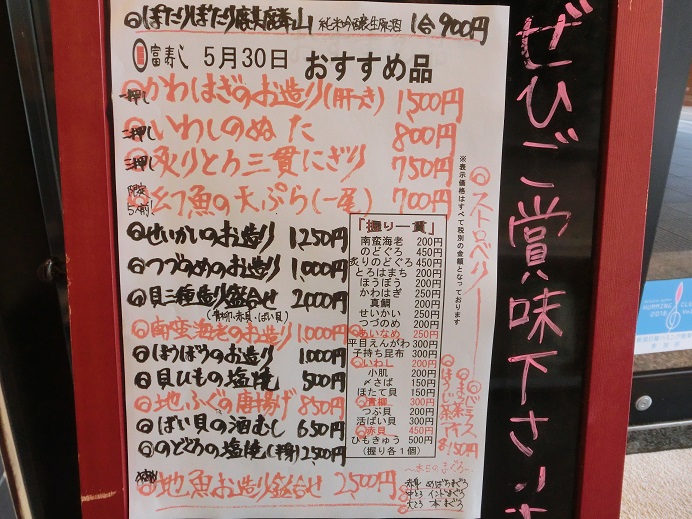 ◎ぽたりぽたり麒麟山 純米吟醸生原酒 1合900円
富寿し 5月30日 おすすめ品
一押し ◎かわはぎのお造り(肝つき) 1,500円
二押し ◎いわしのぬた 800円
三押し ◎炙りとろ三貫にぎり 750円
限定5人前! ◎幻魚の天ぷら(一尾) 700円
◎せいかいのお造り 1,250円
◎つづのめのお造り 1,000円
◎貝三種造り盛合せ 2,000円
(青柳・赤貝・ばい貝)
◎南蛮海老のお造り 1,000円
◎ほうぼうのお造り 1,000円
◎貝ひもの塩焼 500円
◎地ふぐの唐揚げ 850円
◎ばい貝の酒むし 650円
◎のどぐろの塩焼(半身) 2,500円
◎地魚お造り盛合せ 2,500円
「握り一貫」
南蛮海老 200円
のどぐろ 200円
炙りのどぐろ 250円
とろはまち 200円
ほうぼう 200円
かわはぎ 250円
真鯛 200円
せいかい 250円
つづのめ 200円
◎あいなめ 250円
平目えんがわ 300円
子持ち昆布 300円
◎いわし 200円
小肌 200円
〆さば 150円
ほたて貝 150円
◎青柳 300円
つぶ貝 200円
活ばい貝 300円
◎赤貝 450円
ひもきゅう 500円
(握り各1個)
※表示価格はすべて税別の金額となっております
◎ストロベリー
◎ほうじ茶アイス
各150円
〜本日のまぐろ〜
赤身 めばちまぐろ
中とろ インドまぐろ
大とろ 本まぐろ
ぜひご賞味下さい
2018